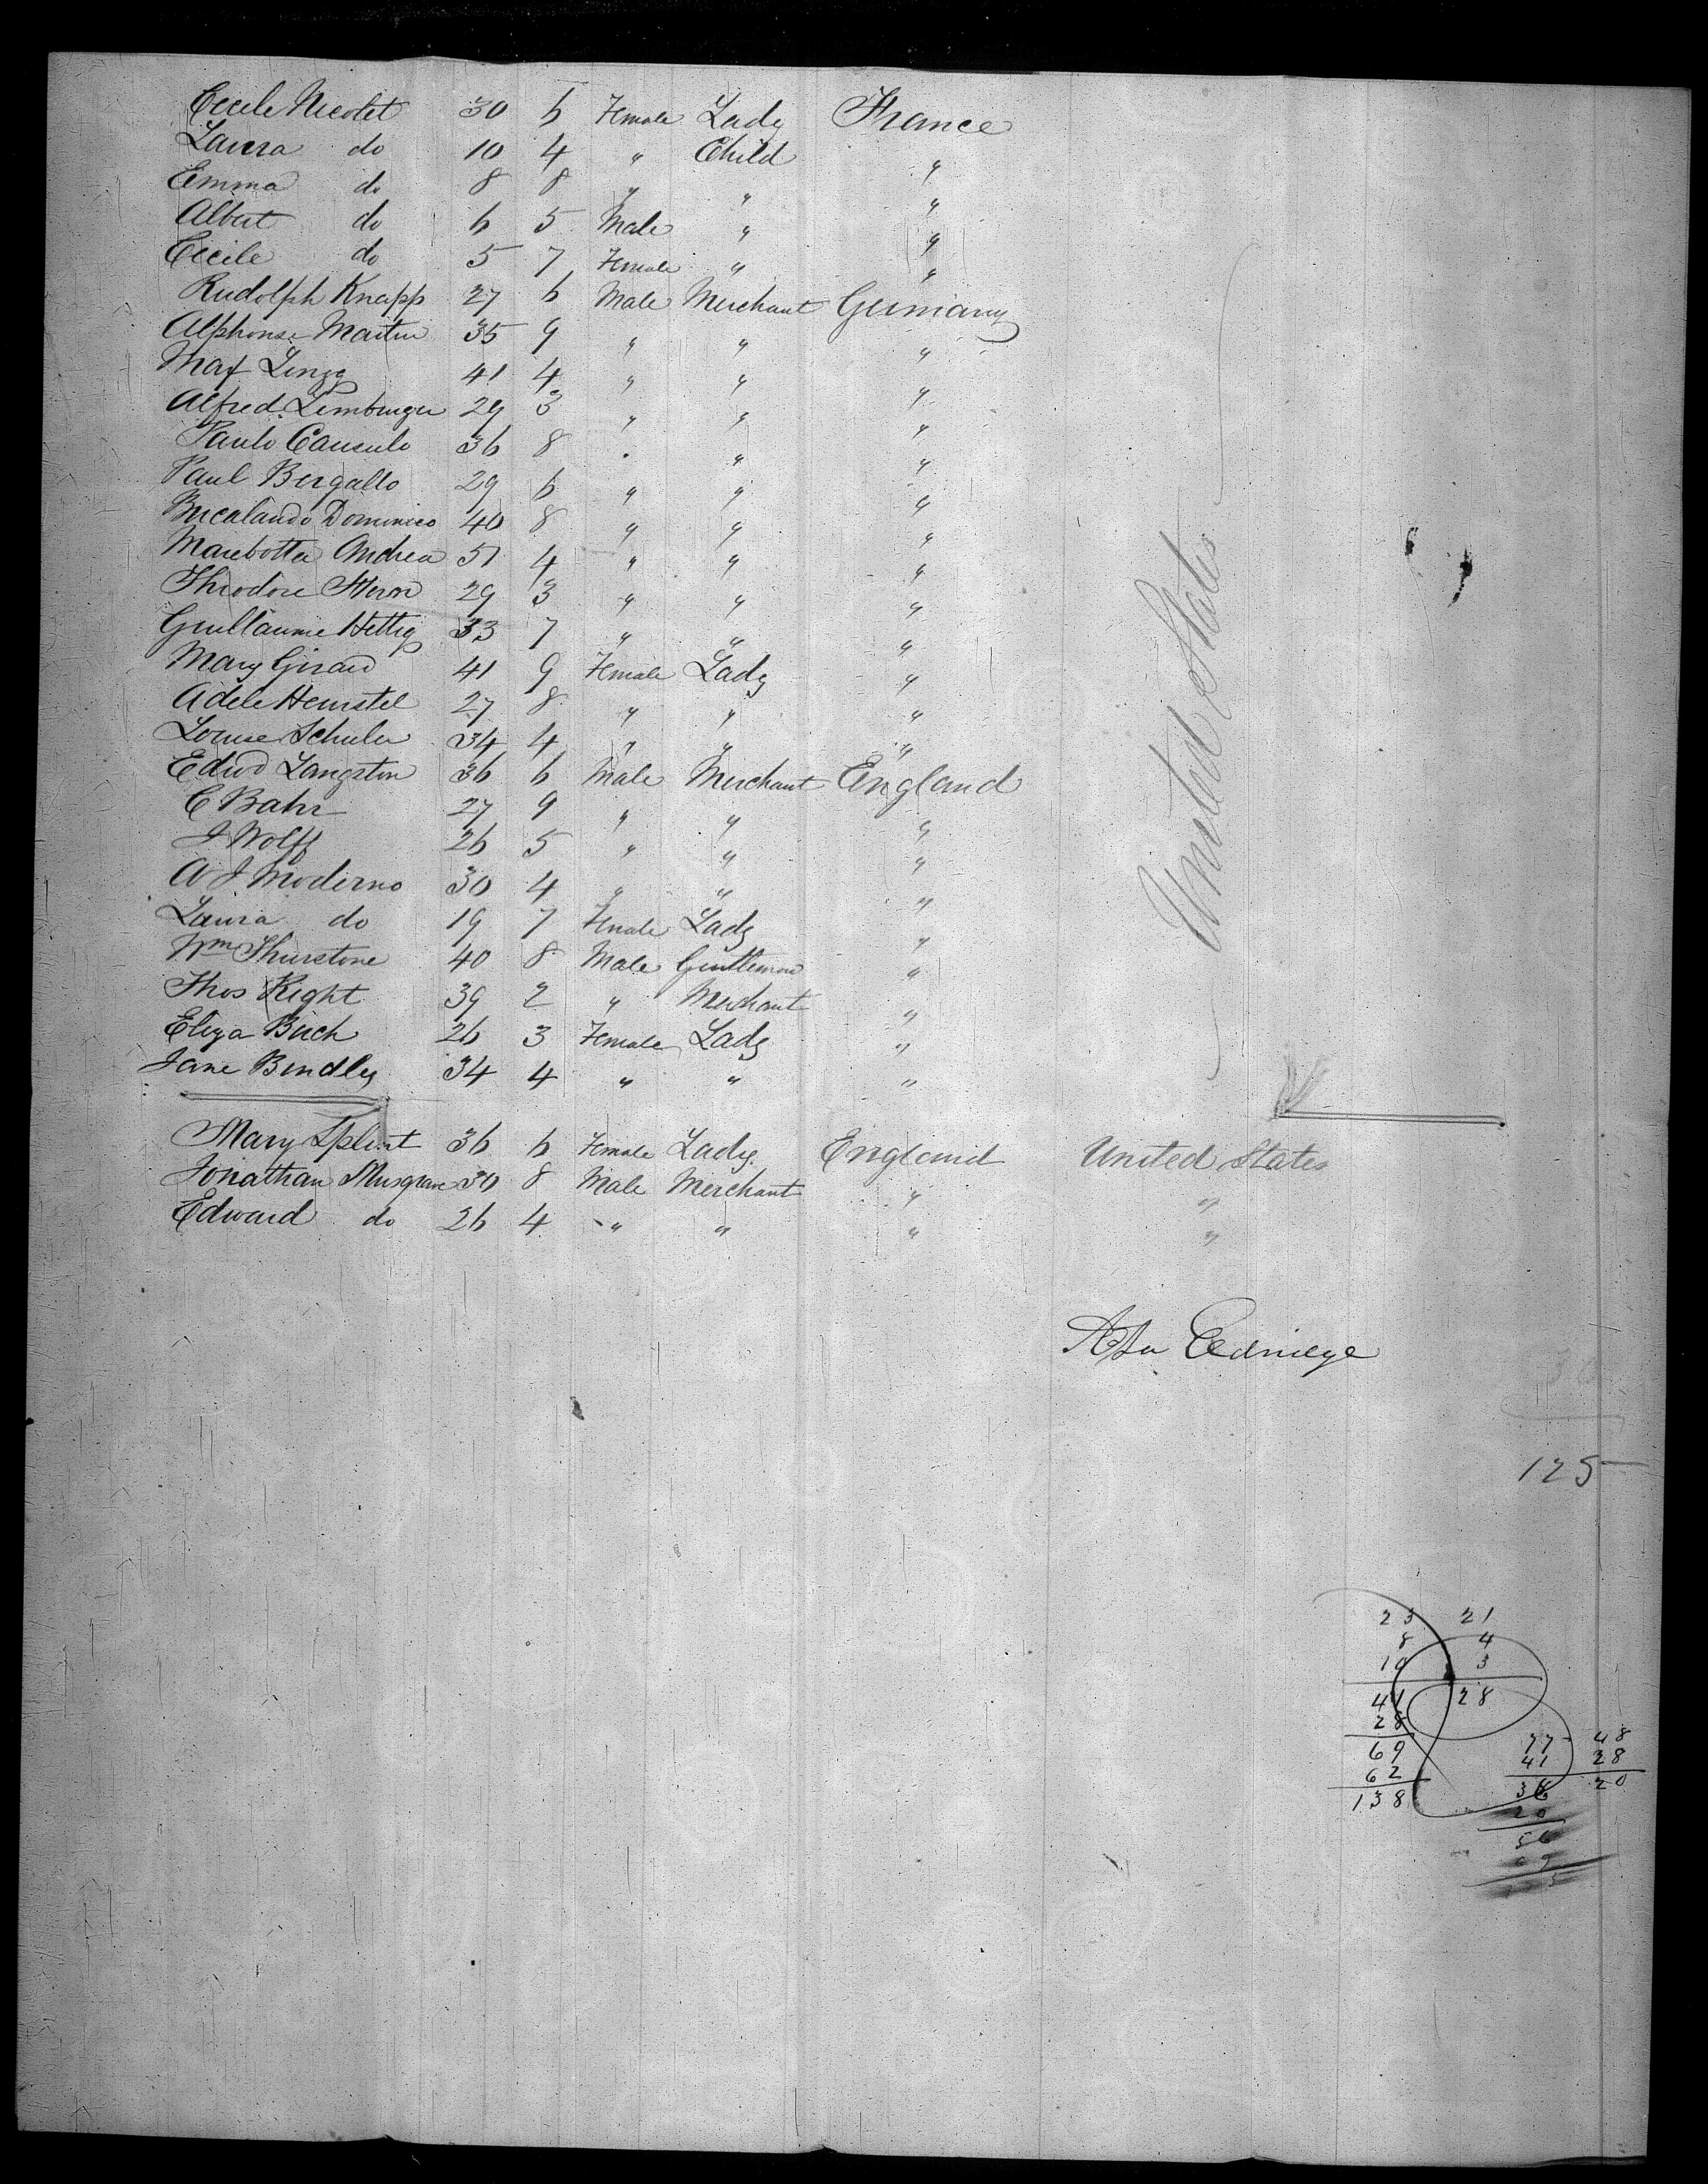 Cecile Nicolet 30 6 Female Lady France
Laura do 10 4 " Child "
Emma do 8 8 " " "
Albert do 6 5 Male " "
Cecile do 5 7 Female " "
Rudolph Knapp 27 6 Male Merchant Germany
Alphonse Martin 35 9 " " "
Max Lingg 41 4 " " "
Alfred Limburger 29 3 " " "
Paulo 36 8 " " "
Paul Bergallo 29 6 " " "
Dominico 40 8 " " "
Marebotta Andrea 51 4 " " "
Theodore Stern 29 3 " " "
Guillaume Hettig 33 7 " " "
Mary Girard 41 9 Female Lady "
Adele 27 8 " " "
Louise Schuler 34 4 " " "
Edwd Langston 36 6 Male Merchant England
C Bahr 27 9 " " "
J Wolff 26 5 " " "
A J Moderno 30 4 " " "
Laura do 19 7 Female Lady "
Wm Thurstone 40 8 Male Gentleman "
Thos Right 39 2 " Merchant "
Eliza Birch 26 3 Female Lady "
Jane Bindley 34 4 " " "
United States
Mary Splent 36 6 Female Lady England United States
Jonathan Musgrave 30 8 Male Merchant " "
Edward do 26 4 " " " "
Asa Eldridge
30
125
23 21
8 4
10 3
41 28
28
69 77 48
62 41 28
138 36 20
20
56
69